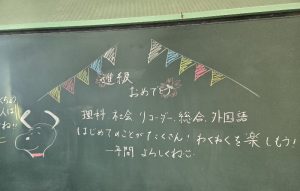 進級
おめでとう
理科 社会 リコーダー、総合、外国語
はじめてのことがたくさん！わくわくを楽しもう！
一年間 よろしくね